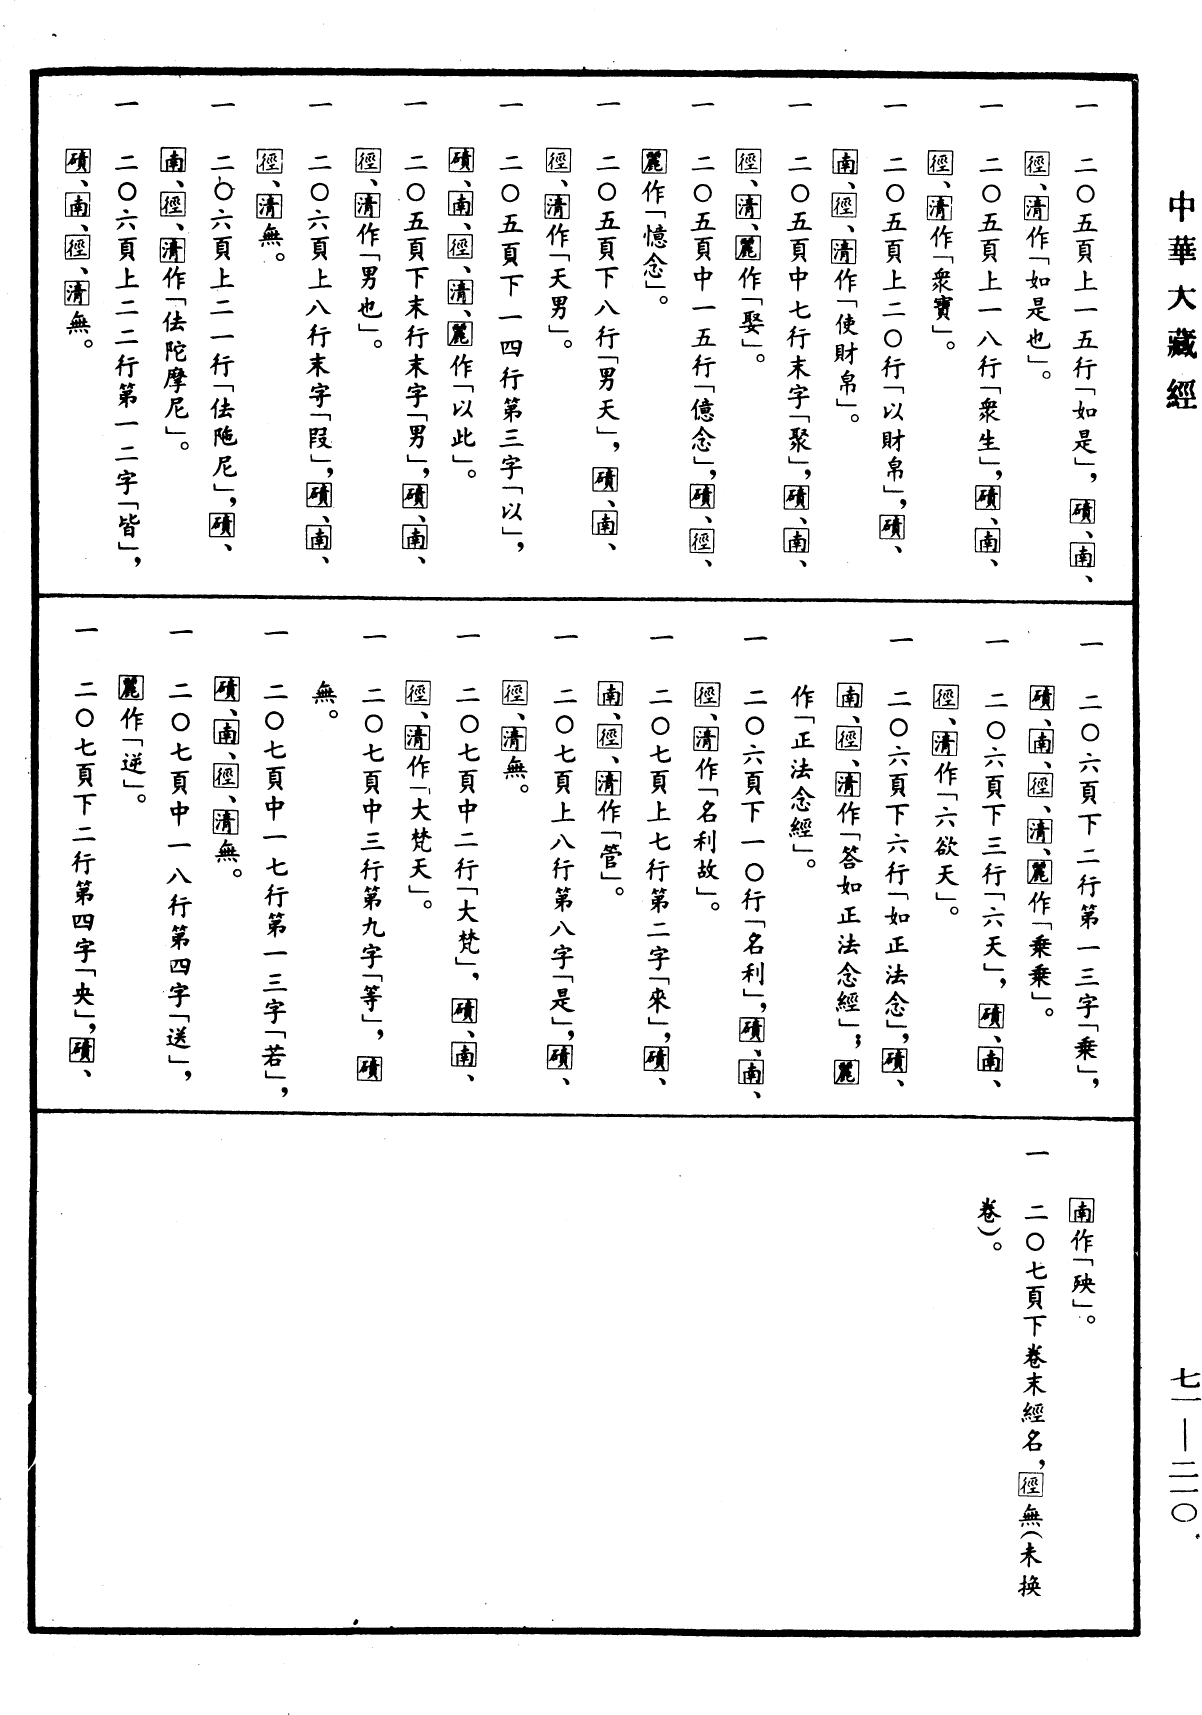 中華大藏經
一　二〇五頁上一五行「如是」，磧、南、
徑、清作「如是也」。
一　二〇五頁上一八行「衆生」，磧、南、
徑、清作「衆寶」。
一　二〇五頁上二〇行「以財帛」，磧、
南、徑、清作「使財帛」。
一　二〇五頁中七行末字「聚」，磧、南、
徑、清、麗作「娶」。
一　二〇五頁中一五行「億念」，磧、徑、
麗作「憶念」。
一　二〇五頁下八行「男天」，磧、南、
徑、清作「天男」。
一　二〇五頁下一四行第三字「以」，
磧、南、徑、清、麗作「以此」。
一　二〇五頁下末行末字「男」，磧、南、
徑、清作「男也」。
一　二〇六頁上八行末字「段」，磧、南、
徑、清無。
一　二〇六頁上二一行「佉陁尼」，磧、
南、徑、清作「佉陀摩尼」。
一　二〇六頁上二二行第一二字「皆」，
磧、南、徑、清無。
一　二〇六頁下二行第一三字「乗」，
磧、南、徑、清、麗作「乗乗」。
一　二〇六頁下三行「六天」，磧、南、
徑、清作「六欲天」。
一　二〇六頁下六行「如正法念」，磧、
南、徑、清作「答如正法念經」；麗
作「正法念經」。
一　二〇六頁下一〇行「名利」，磧、南、
徑、清作「名利故」。
一　二〇七頁上七行第二字「來」，磧、
南、徑、清作「管」。
一　二〇七頁上八行第八字「是」，磧、
徑、清無。
一　二〇七頁中二行「大梵」，磧、南、
徑、清作「大梵天」。
一　二〇七頁中三行第九字「等」，磧
無。
一　二〇七頁中一七行第一三字「若」，
磧、南、徑、清無。
一　二〇七頁中一八行第四字「送」，
麗作「逆」。
一　二〇七頁下二行第四字「央」，磧、
南作「殃」。
一　二〇七頁下卷末經名，徑無（未換
卷）。
七一—二一〇